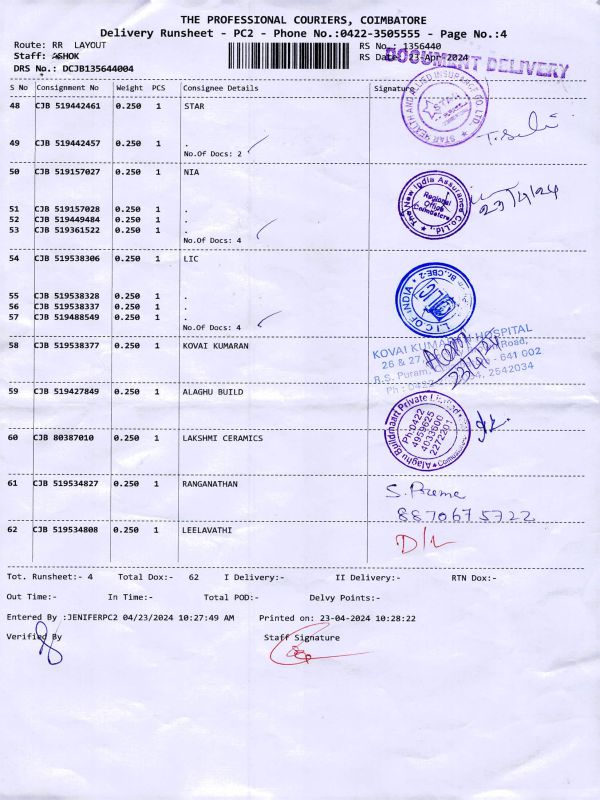 THE PROFESSIONAL COURIERS, COIMBATORE
Delivery Runsheet - PC2 - Phone No.:0422-3505555 - Page No.:4
Route: RR LAYOUT
RS No.: 1356440
Staff: ASHOK
RS Date: 23-Apr-2024
DOCUMENT DELIVERY
DRS No.: DCJB135644004
S No Consignment No Weight PCS Consignee Details Signature
48 CJB 519442461 0.250 1 STAR
STAR HEALTH AND ALLIED INSURANCE CO. LTD.
49 CJB 519442457 0.250 1 .
No.Of Docs: 2
50 CJB 519157027 0.250 1 NIA
The New India Assurance Co. Ltd.
Regional
Office
Coimbatore
23/4/24
51 CJB 519157028 0.250 1 .
52 CJB 519449484 0.250 1 .
53 CJB 519361522 0.250 1 .
No.Of Docs: 4
54 CJB 519538306 0.250 1 LIC
L I C OF INDIA
CBE-2
55 CJB 519538328 0.250 1 .
56 CJB 519538337 0.250 1 .
57 CJB 519488549 0.250 1 .
No.Of Docs: 4
58 CJB 519538377 0.250 1 KOVAI KUMARAN
KOVAI KUMARAN HOSPITAL
26 & 27, Road,
R.S. Puram, - 641 002
Ph : 0422 2542034
23/4/24
59 CJB 519427849 0.250 1 ALAGHU BUILD
Alaghu Buildmaart Private Limited
Ph:0422
4958625
4033600
2272201
60 CJB 80387010 0.250 1 LAKSHMI CERAMICS
61 CJB 519534827 0.250 1 RANGANATHAN
S. Prema
8870675722
62 CJB 519534808 0.250 1 LEELAVATHI
D/L
Tot. Runsheet:- 4 Total Dox:- 62 I Delivery:- II Delivery:- RTN Dox:-
Out Time:- In Time:- Total POD:- Delvy Points:-
Entered By :JENIFERPC2 04/23/2024 10:27:49 AM Printed on: 23-04-2024 10:28:22
Verified By Staff Signature